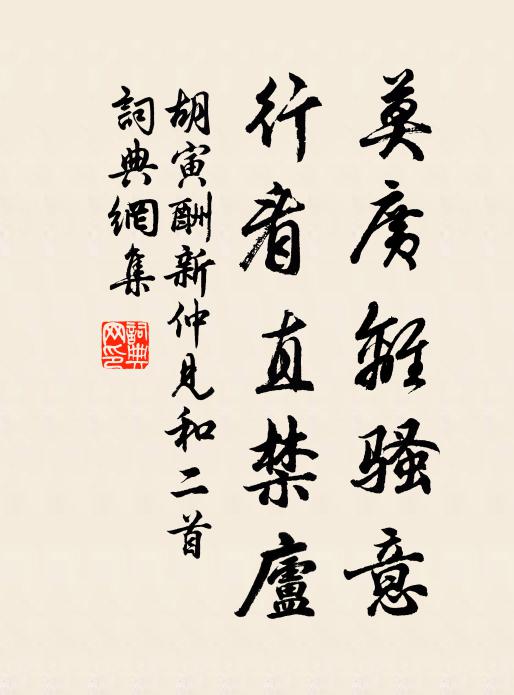 莫廣離騷意
行看直禁廬
胡寅酬新仲見和二首
詞典網集
詞典網印